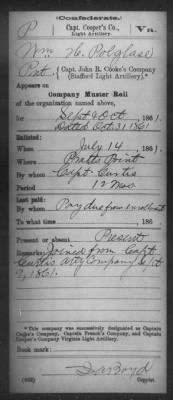 (Confederate.)
P Capt. Cooper's Co., Light Artillery. Va.
Wm H. Polglase
Pvt., Capt. John R. Cooke's Company
(Stafford Light Artillery).*
Appears on
Company Muster Roll
of the organization named above,
for Sept & Oct, 1861.
Dated Oct 31 1861
Enlisted:
When July 14, 1861.
Where Pratts Point
By whom Capt Curtis
Period 12 Mos
Last paid:
By whom Pay due from enrolment
To what time , 186 .
Present or absent Present
Remarks: Joined from Capt
Curtis Arty Company Sept
9, 1861.
*This company was successively designated as Captain
Cooke's Company, Captain French's Company, and Captain
Cooper's Company Virginia Light Artillery.
Book mark:
Boyd
(642) Copyist.